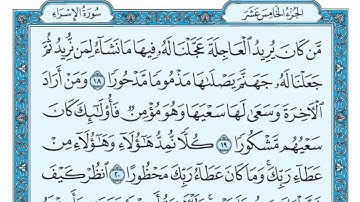 الجزء الخامس عشر سورة الإسراء
مَّن كَانَ يُرِيدُ ٱلْعَاجِلَةَ عَجَّلْنَا لَهُۥ فِيهَا مَا نَشَآءُ لِمَن نُّرِيدُ ثُمَّ
جَعَلْنَا لَهُۥ جَهَنَّمَ يَصْلَىٰهَا مَذْمُومًا مَّدْحُورًا ١٨ وَمَنْ أَرَادَ
ٱلْـَٔاخِرَةَ وَسَعَىٰ لَهَا سَعْيَهَا وَهُوَ مُؤْمِنٌ فَأُو۟لَـٰٓئِكَ كَانَ
سَعْيُهُم مَّشْكُورًا ١٩ كُلًّا نُّمِدُّ هَـٰٓؤُلَآءِ وَهَـٰٓؤُلَآءِ مِنْ
عَطَآءِ رَبِّكَ ۚ وَمَا كَانَ عَطَآءُ رَبِّكَ مَحْظُورًا ٢٠ ٱنظُرْ كَيْفَ